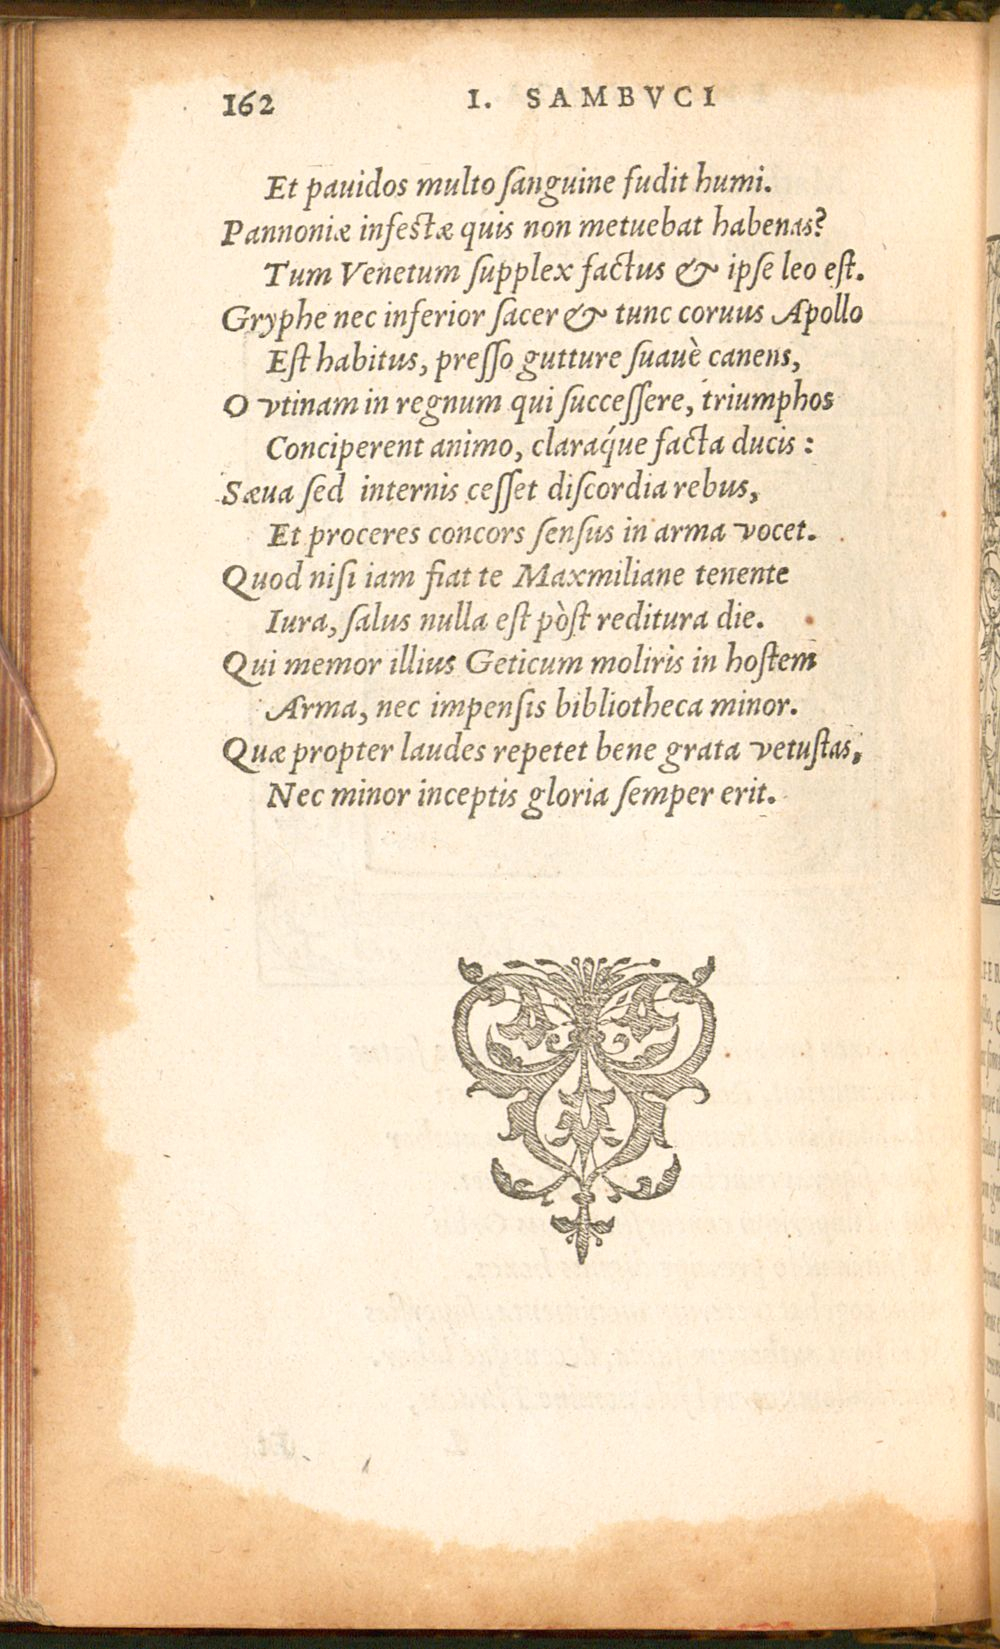 162 I. SAMBVCI
Et pauidos multo ſanguine fudit humi.
Pannoniæ infeſtæ quis non metuebat habenas?
Tum Venetum ſupplex factus & ipſe leo eſt.
Gryphe nec inferior ſacer & tunc coruus Apollo
Eſt habitus, preſſo gutture ſuauè canens,
O vtinam in regnum qui ſucceſſere, triumphos
Conciperent animo, claraq́ue facta ducis:
Sæua ſed internis ceſſet diſcordia rebus,
Et proceres concors ſenſus in arma vocet.
Quod niſi iam fiat te Maxmiliane tenente
Iura, ſalus nulla eſt pòſt reditura die.
Qui memor illius Geticum moliris in hoſtem
Arma, nec impenſis bibliotheca minor.
Quæ propter laudes repetet bene grata vetuſtas,
Nec minor inceptis gloria ſemper erit.